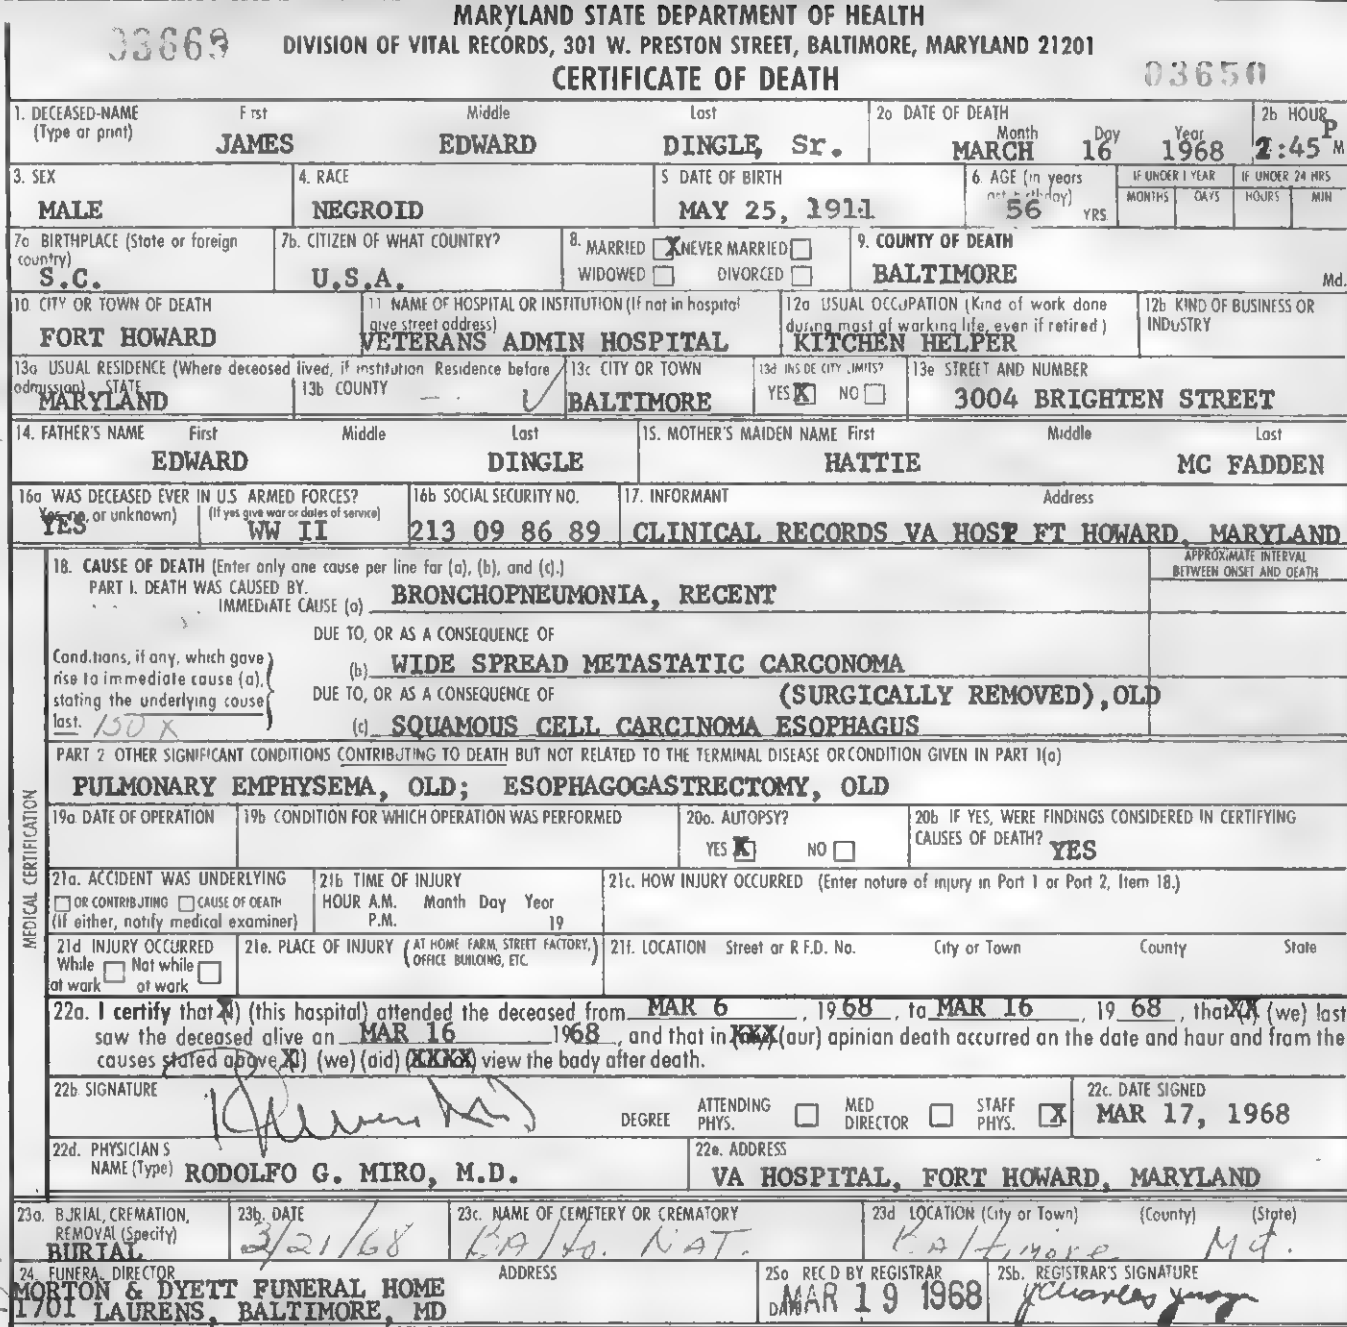 MARYLAND STATE DEPARTMENT OF HEALTH
DIVISION OF VITAL RECORDS, 301 W. PRESTON STREET, BALTIMORE, MARYLAND 21201
CERTIFICATE OF DEATH
03669
03650
1. DECEASED-NAME (Type or print) First Middle Last
JAMES EDWARD DINGLE, Sr.
2a DATE OF DEATH Month Day Year
MARCH 16 1968
2b HOUR
2:45 P M
3. SEX
MALE
4. RACE
NEGROID
5 DATE OF BIRTH
MAY 25, 1911
6. AGE (in years last birthday)
56 YRS
IF UNDER 1 YEAR MONTHS DAYS
IF UNDER 24 HRS HOURS MIN
7a BIRTHPLACE (State or foreign country)
S.C.
7b. CITIZEN OF WHAT COUNTRY?
U.S.A.
8. MARRIED X NEVER MARRIED
WIDOWED DIVORCED
9. COUNTY OF DEATH
BALTIMORE Md.
10. CITY OR TOWN OF DEATH
FORT HOWARD
11 NAME OF HOSPITAL OR INSTITUTION (If not in hospital give street address)
VETERANS ADMIN HOSPITAL
12a USUAL OCCUPATION (Kind of work done during most of working life, even if retired)
KITCHEN HELPER
12b KIND OF BUSINESS OR INDUSTRY
13a USUAL RESIDENCE (Where deceased lived, if institution Residence before admission) STATE
MARYLAND
13b COUNTY
13c CITY OR TOWN
BALTIMORE
13d INSIDE CITY LIMITS?
YES X NO
13e STREET AND NUMBER
3004 BRIGHTEN STREET
14. FATHER'S NAME First Middle Last
EDWARD DINGLE
15. MOTHER'S MAIDEN NAME First Middle Last
HATTIE MC FADDEN
16a WAS DECEASED EVER IN U.S. ARMED FORCES?
Yes, no, or unknown) (If yes give war or dates of service)
YES WW II
16b SOCIAL SECURITY NO.
213 09 86 89
17. INFORMANT Address
CLINICAL RECORDS VA HOSP FT HOWARD, MARYLAND
18. CAUSE OF DEATH (Enter only one cause per line for (a), (b), and (c).)
APPROXIMATE INTERVAL BETWEEN ONSET AND DEATH
PART I. DEATH WAS CAUSED BY.
IMMEDIATE CAUSE (a) BRONCHOPNEUMONIA, RECENT
DUE TO, OR AS A CONSEQUENCE OF
Conditions, if any, which gave rise to immediate cause (a), stating the underlying cause last. 150 X
(b) WIDE SPREAD METASTATIC CARCONOMA
DUE TO, OR AS A CONSEQUENCE OF (SURGICALLY REMOVED), OLD
(c) SQUAMOUS CELL CARCINOMA ESOPHAGUS
PART 2 OTHER SIGNIFICANT CONDITIONS CONTRIBUTING TO DEATH BUT NOT RELATED TO THE TERMINAL DISEASE OR CONDITION GIVEN IN PART 1(a)
PULMONARY EMPHYSEMA, OLD; ESOPHAGOGASTRECTOMY, OLD
MEDICAL CERTIFICATION
19a DATE OF OPERATION
19b CONDITION FOR WHICH OPERATION WAS PERFORMED
20a. AUTOPSY?
YES X NO
20b IF YES, WERE FINDINGS CONSIDERED IN CERTIFYING CAUSES OF DEATH? YES
21a. ACCIDENT WAS UNDERLYING
OR CONTRIBUTING CAUSE OF DEATH
(If either, notify medical examiner)
21b TIME OF INJURY
HOUR A.M. Month Day Year
P.M. 19
21c. HOW INJURY OCCURRED (Enter nature of injury in Part 1 or Part 2, Item 18.)
21d INJURY OCCURRED
While at work Not while at work
21e. PLACE OF INJURY (AT HOME FARM, STREET FACTORY, OFFICE BUILDING, ETC.)
21f. LOCATION Street or R.F.D. No. City or Town County State
22a. I certify that X) (this hospital) attended the deceased from MAR 6, 1968, to MAR 16, 1968, that XX (we) last
saw the deceased alive on MAR 16 1968, and that in XXX (our) opinion death occurred on the date and hour and from the
causes stated above X) (we) (did) (XXXX) view the body after death.
22b SIGNATURE
DEGREE ATTENDING PHYS. MED DIRECTOR STAFF PHYS. X
22c. DATE SIGNED
MAR 17, 1968
22d. PHYSICIAN'S NAME (Type) RODOLFO G. MIRO, M.D.
22e. ADDRESS
VA HOSPITAL, FORT HOWARD, MARYLAND
23a. BURIAL, CREMATION, REMOVAL (Specify)
BURIAL
23b. DATE
3/21/68
23c. NAME OF CEMETERY OR CREMATORY
BAlto. NAT.
23d LOCATION (City or Town) (County) (State)
BAltimore Md.
24. FUNERAL DIRECTOR ADDRESS
MORTON & DYETT FUNERAL HOME
1701 LAURENS, BALTIMORE, MD
25a REC'D BY REGISTRAR
DATE MAR 19 1968
25b. REGISTRAR'S SIGNATURE
Charles